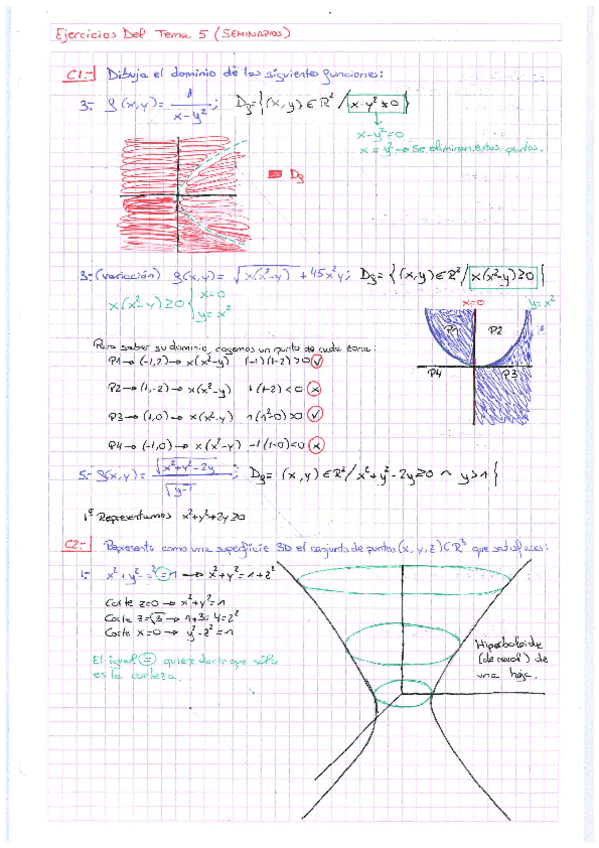 Ejercicios Del Tema 5 (SEMINARIOS)
C1.- Dibuja el dominio de las siguientes funciones:
3.- f(x,y)= 1/(x-y²); Df={(x,y)∈R² / x-y²≠0}
x-y²=0
x=y² → Se eliminan estos puntos.
Df
3.-(variación) f(x,y)= √(x(x²-y)) +45x²y; Df={(x,y)∈R² / x(x²-y)≥0}
x(x²-y)≥0 { x=0
y=x²
x=0
y=x²
P1
P2
P4
P3
Para saber su dominio, cogemos un punto de cada zona:
P1→(-1,2)→ x(x²-y) (-1)(1-2)>0 ✓
P2→(1,-2)→ x(x²-y) 1(1-2)<0 x
P3→(1,0)→ x(x²-y) 1(1²-0)>0 ✓
P4→(-1,0)→ x(x²-y) -1(1-0)<0 x
5.- f(x,y)= √(x²+y²-2y) / √(y-1); Df=(x,y)∈R² / x²+y²-2y≥0 ∩ y>1}
1º Representamos x²+y²+2y≥0
C2.- Representa como una superficie 3D el conjunto de puntos (x,y,z)⊂R³ que satisfaces:
1.- x²+y²-z²=1 → x²+y²=1+z²
Corte z=0 → x²+y²=1
Corte z=√3 → 1+3=4=2²
Corte x=0 → y²-z²=1
El igual (=) quiere decir que sólo
es la corteza.
Hiperboloide
de
una hoja.